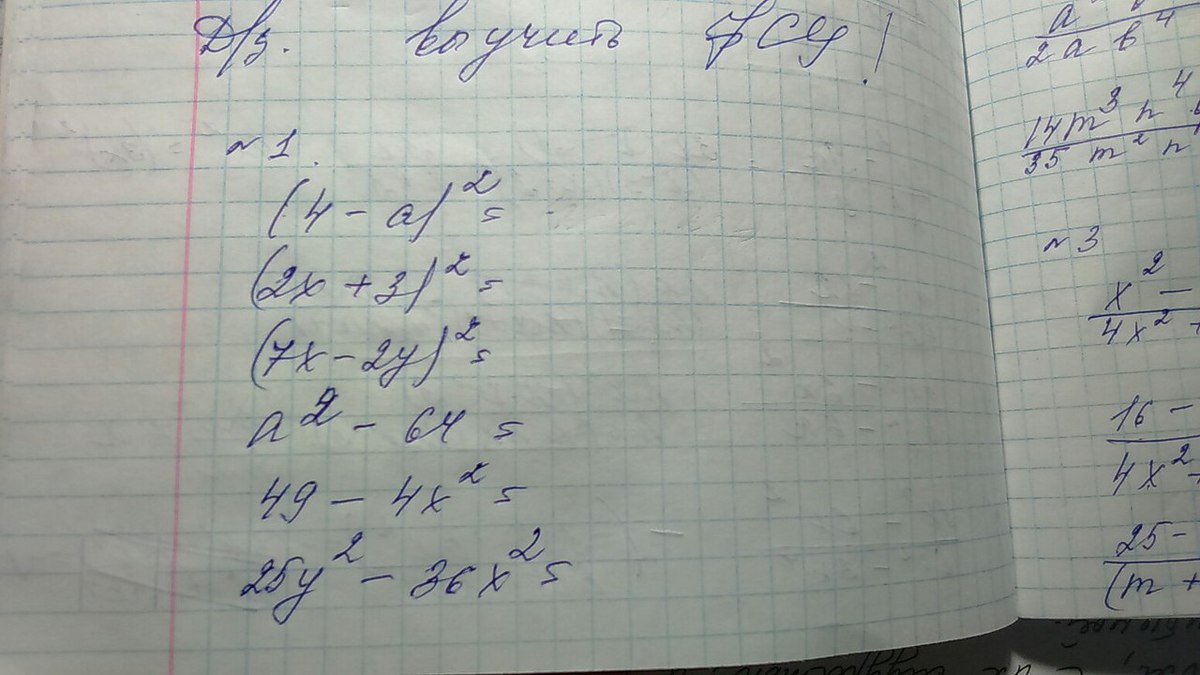 Д/з. выучить ФСУ!
№1.
(4 - a)² =
(2x + 3)² =
(7x - 2y)² =
a² - 64 =
49 - 4x² =
25y² - 36x² =
2ab⁴
14m³n⁴
35m²n
№3
x² -
4x² +
16 -
4x² -
25 -
(m +